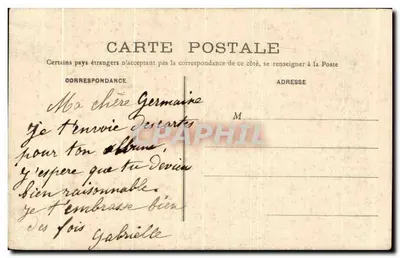 CARTE POSTALE
Certains pays étrangers n'acceptant pas la correspondance de ce côté, se renseigner à la Poste
CORRESPONDANCE
ADRESSE
Ma chère Germaine
je t'envoie des cartes
pour ton album,
j'espère que tu devien
bien raisonnable.
je t'embrasse bien
des fois
Gabrielle
M
CPARAMA